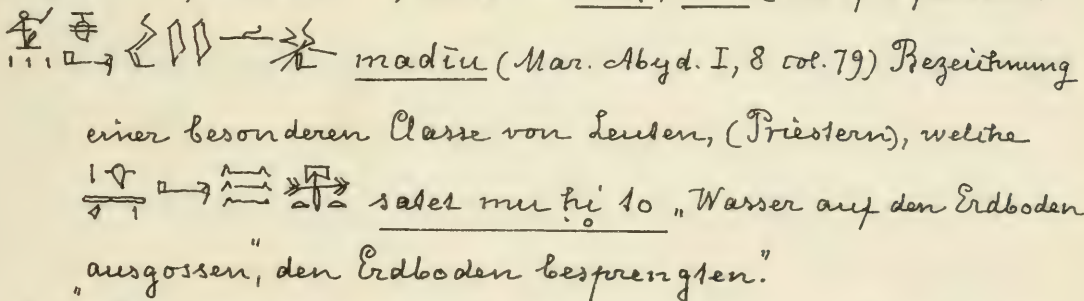 madīu (Mar. Abyd. I, 8 col. 79) Bezeichnung
einer besonderen Classe von Leuten, (Priestern), welche
satet mu ḥi to „Wasser auf den Erdboden
ausgossen,“ „den Erdboden besprengten.“